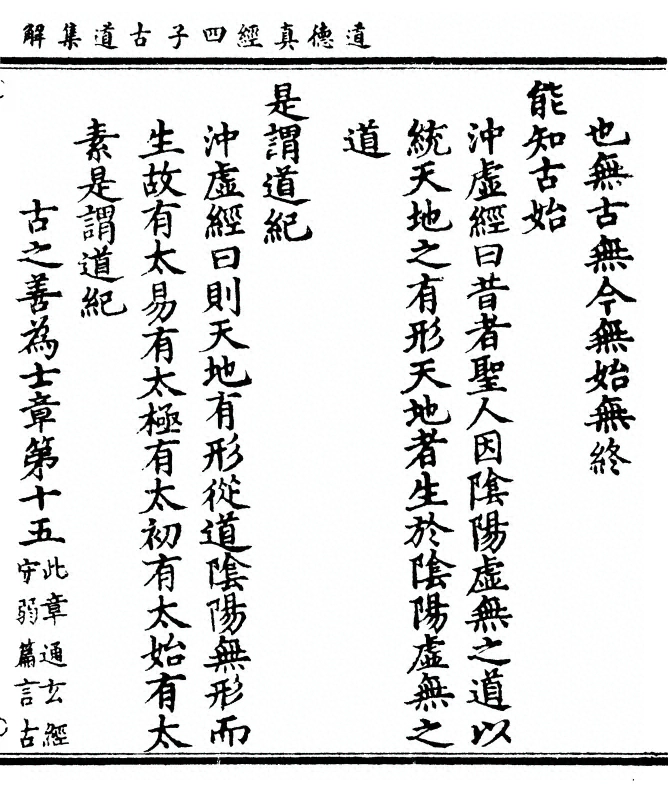 道德真經四子古道集解
也無古無今無始無終
能知古始
沖虛經曰昔者聖人因陰陽虛無之道以
統天地之有形天地者生於陰陽虛無之
道
是謂道紀
沖虛經曰則天地有形從道陰陽無形而
生故有太易有太極有太初有太始有太
素是謂道紀
古之善為士章第十五
此章通玄經
守弱篇言古